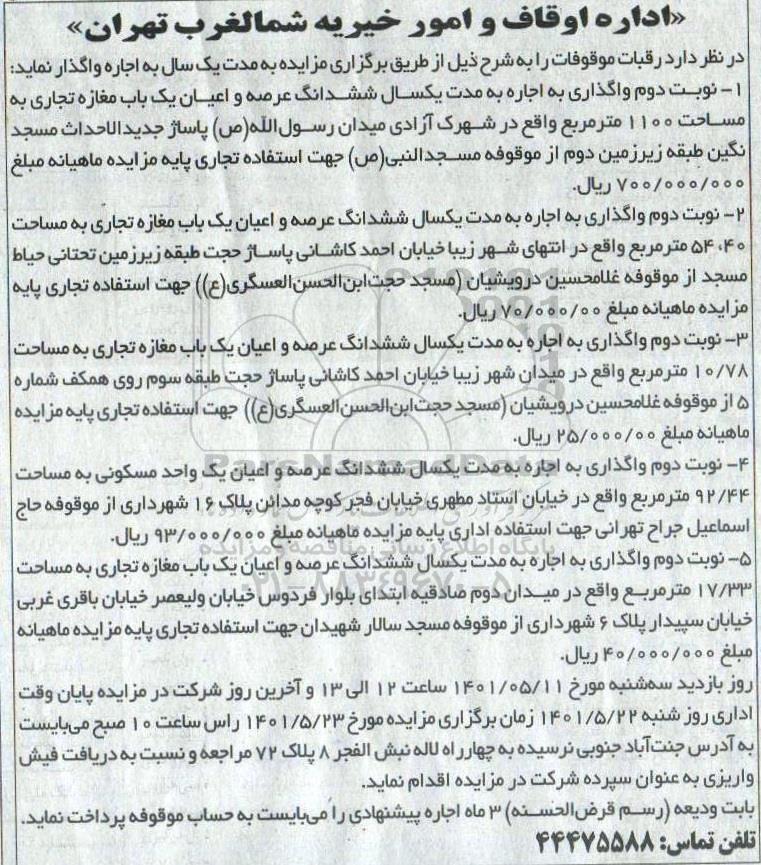 «اداره اوقاف و امور خیریه شمالغرب تهران»
در نظر دارد رقبات موقوفات را به شرح ذیل از طریق برگزاری مزایده به مدت یک سال به اجاره واگذار نماید:
۱- نوبت دوم واگذاری به اجاره به مدت یکسال ششدانگ عرصه و اعیان یک باب مغازه تجاری به
مساحت ۱۱۰۰ مترمربع واقع در شهرک آزادی میدان رسول‌الله(ص) پاساژ جدیدالاحداث مسجد
نگین طبقه زیرزمین دوم از موقوفه مسجدالنبی(ص) جهت استفاده تجاری پایه مزایده ماهیانه مبلغ
۷۰۰/۰۰۰/۰۰۰ ریال.
۲- نوبت دوم واگذاری به اجاره به مدت یکسال ششدانگ عرصه و اعیان یک باب مغازه تجاری به مساحت
۵۴،۴۰ مترمربع واقع در انتهای شهر زیبا خیابان احمد کاشانی پاساژ حجت طبقه زیرزمین تحتانی حیاط
مسجد از موقوفه غلامحسین درویشیان (مسجد حجت‌ابن‌الحسن‌العسگری(ع)) جهت استفاده تجاری پایه
مزایده ماهیانه مبلغ ۷۰/۰۰۰/۰۰ ریال.
۳- نوبت دوم واگذاری به اجاره به مدت یکسال ششدانگ عرصه و اعیان یک باب مغازه تجاری به مساحت
۱۰/۷۸ مترمربع واقع در میدان شهر زیبا خیابان احمد کاشانی پاساژ حجت طبقه سوم روی همکف شماره
۵ از موقوفه غلامحسین درویشیان (مسجد حجت‌ابن‌الحسن‌العسگری(ع)) جهت استفاده تجاری پایه مزایده
ماهیانه مبلغ ۲۵/۰۰۰/۰۰ ریال.
ParsNamadData
۴- نوبت دوم واگذاری به اجاره به مدت یکسال ششدانگ عرصه و اعیان یک واحد مسکونی به مساحت
۹۲/۴۴ مترمربع واقع در خیابان استاد مطهری خیابان فجر کوچه مدائن پلاک ۱۶ شهرداری از موقوفه حاج
اسماعیل جراح تهرانی جهت استفاده اداری پایه مزایده ماهیانه مبلغ ۹۳/۰۰۰/۰۰۰ ریال.
پایگاه اطلاع رسانی مناقصه و مزایده
۵- نوبت دوم واگذاری به اجاره به مدت یکسال ششدانگ عرصه و اعیان یک باب مغازه تجاری به مساحت
۰۲۱-۸۸۳۴۹۶۷۰-۵
۱۷/۳۳ مترمربع واقع در میدان دوم صادقیه ابتدای بلوار فردوس خیابان ولیعصر خیابان باقری غربی
خیابان سپیدار پلاک ۶ شهرداری از موقوفه مسجد سالار شهیدان جهت استفاده تجاری پایه مزایده ماهیانه
مبلغ ۴۰/۰۰۰/۰۰۰ ریال.
روز بازدید سه‌شنبه مورخ ۱۴۰۱/۰۵/۱۱ ساعت ۱۲ الی ۱۳ و آخرین روز شرکت در مزایده پایان وقت
اداری روز شنبه ۱۴۰۱/۵/۲۲ زمان برگزاری مزایده مورخ ۱۴۰۱/۵/۲۳ راس ساعت ۱۰ صبح می‌بایست
به آدرس جنت‌آباد جنوبی نرسیده به چهارراه لاله نبش الفجر ۸ پلاک ۷۲ مراجعه و نسبت به دریافت فیش
واریزی به عنوان سپرده شرکت در مزایده اقدام نماید.
بابت ودیعه (رسم قرض‌الحسنه) ۳ ماه اجاره پیشنهادی را می‌بایست به حساب موقوفه پرداخت نماید.
تلفن تماس: ۴۴۴۷۵۵۸۸